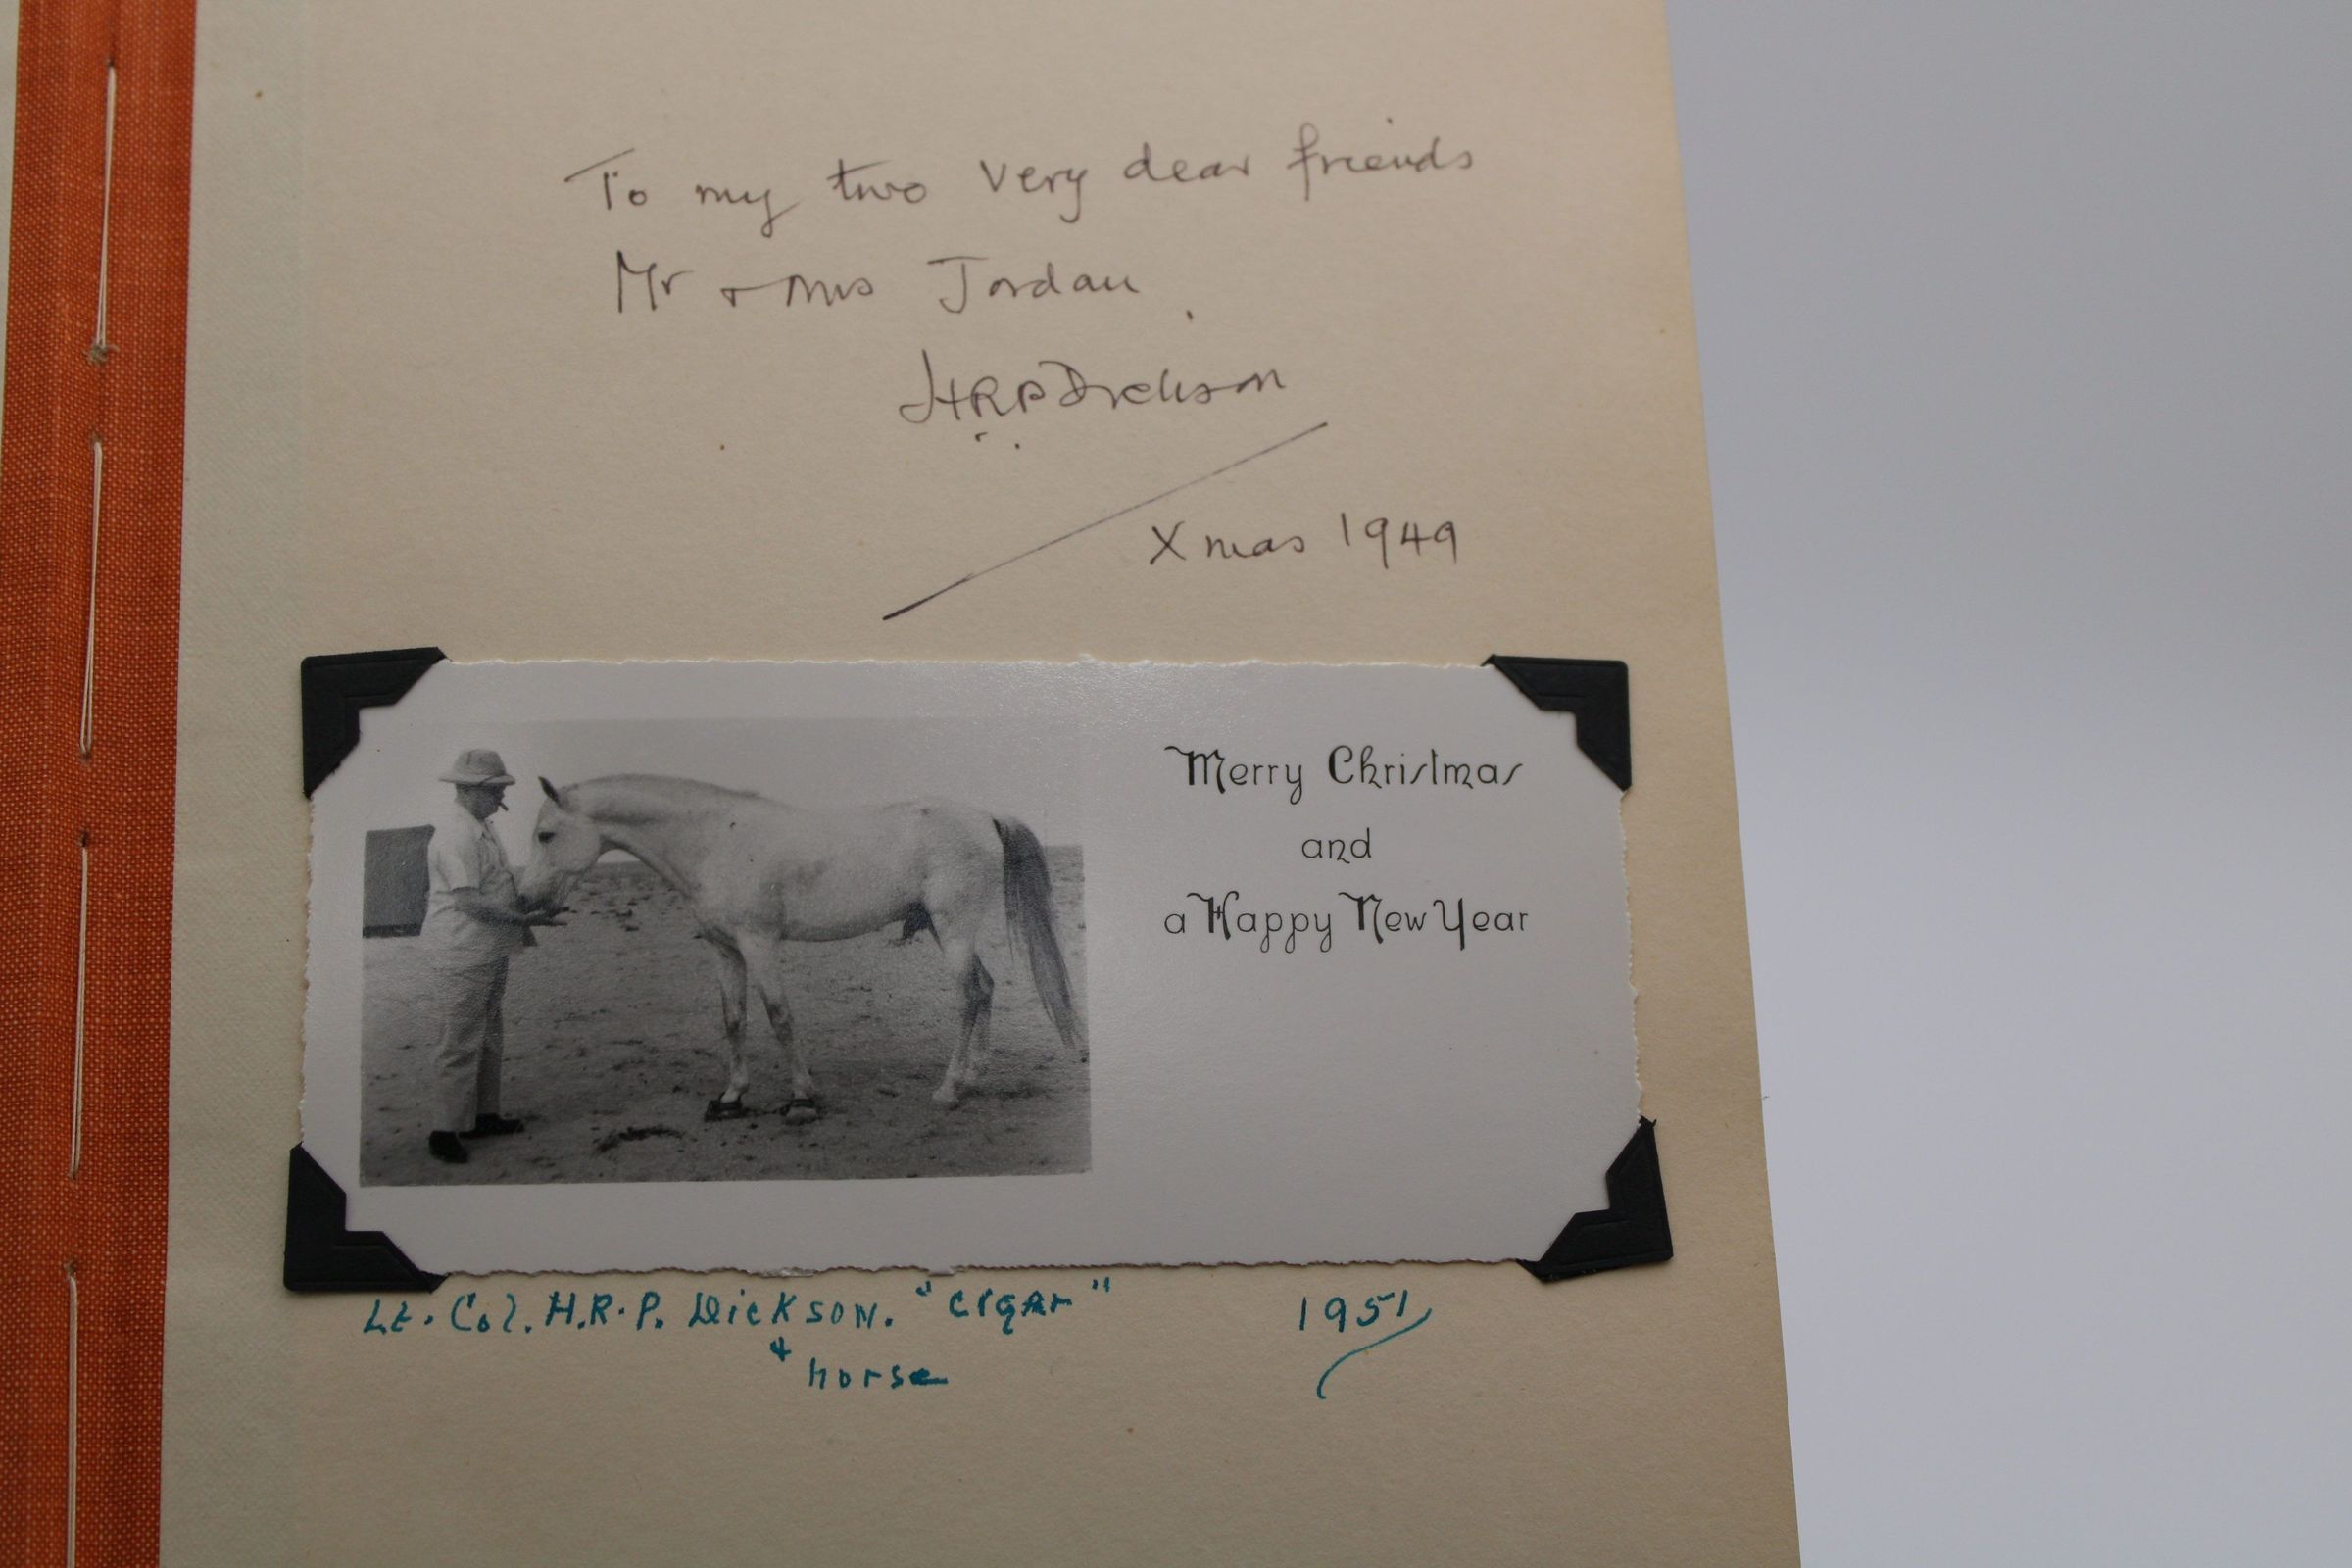 To my two very dear friends
Mr + Mrs Jordan
H.R.P. Dickson
Xmas 1949
Merry Christmas
and
a Happy New Year
Lt. Col. H.R.P. Dickson. "cigar" 1951
+ horse